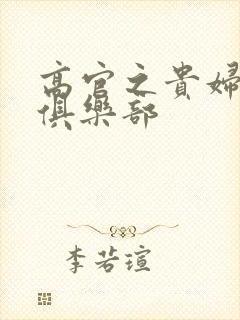 高官之貴婦
俱樂部
李若瑄